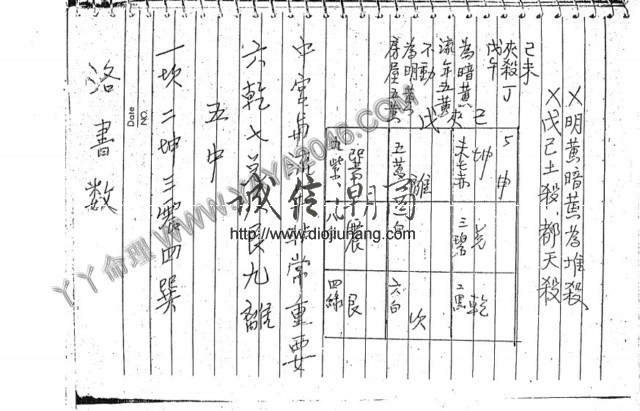 己未
夾殺丁
戊午
×明黃暗黃為堆殺
×戊己土殺,都天殺
為暗黃
流年五黃
不動
為明黃
房屋五黃
戊夾己
巽
離
五黃
坤
未七赤
5
申
震
八白
三碧
兌
艮
四綠
六白
坎
二黑
乾
常重要
六乾七
艮九離
五中
一坎二坤三震四巽
洛書數
Date
No
誠信潮商
http://www.diojiuhang.com
丫丫命理 WWW.YAYA2046.COM